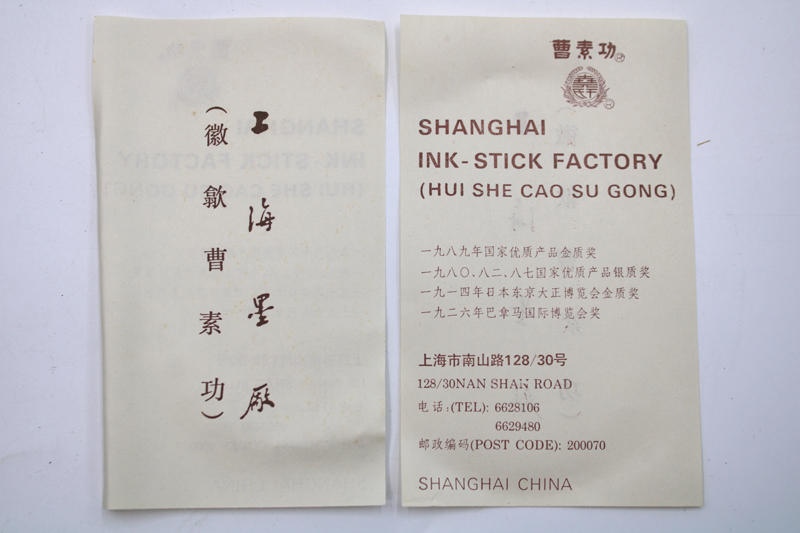 上海墨厂
(徽歙曹素功)
曹素功
SHANGHAI
INK-STICK FACTORY
(HUI SHE CAO SU GONG)
一九八九年国家优质产品金质奖
一九八〇、八二、八七国家优质产品银质奖
一九一四年日本东京大正博览会金质奖
一九二六年巴拿马国际博览会奖
上海市南山路128/30号
128/30NAN SHAN ROAD
电话:(TEL): 6628106
6629480
邮政编码(POST CODE): 200070
SHANGHAI CHINA